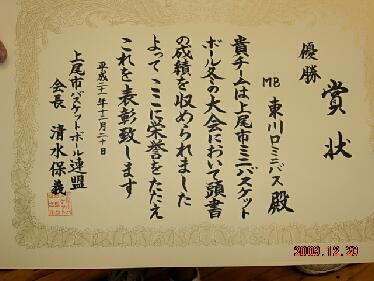 賞状
優勝
MB 東川口ミニバス殿
貴チームは上尾市ミニバスケット
ボール冬の大会において頭書
の成績を収められました
よってここに栄誉をたたえ
これを表彰致します
平成二十一年十二月二十日
上尾市バスケットボール連盟
会長 清水保義
2009.12.20